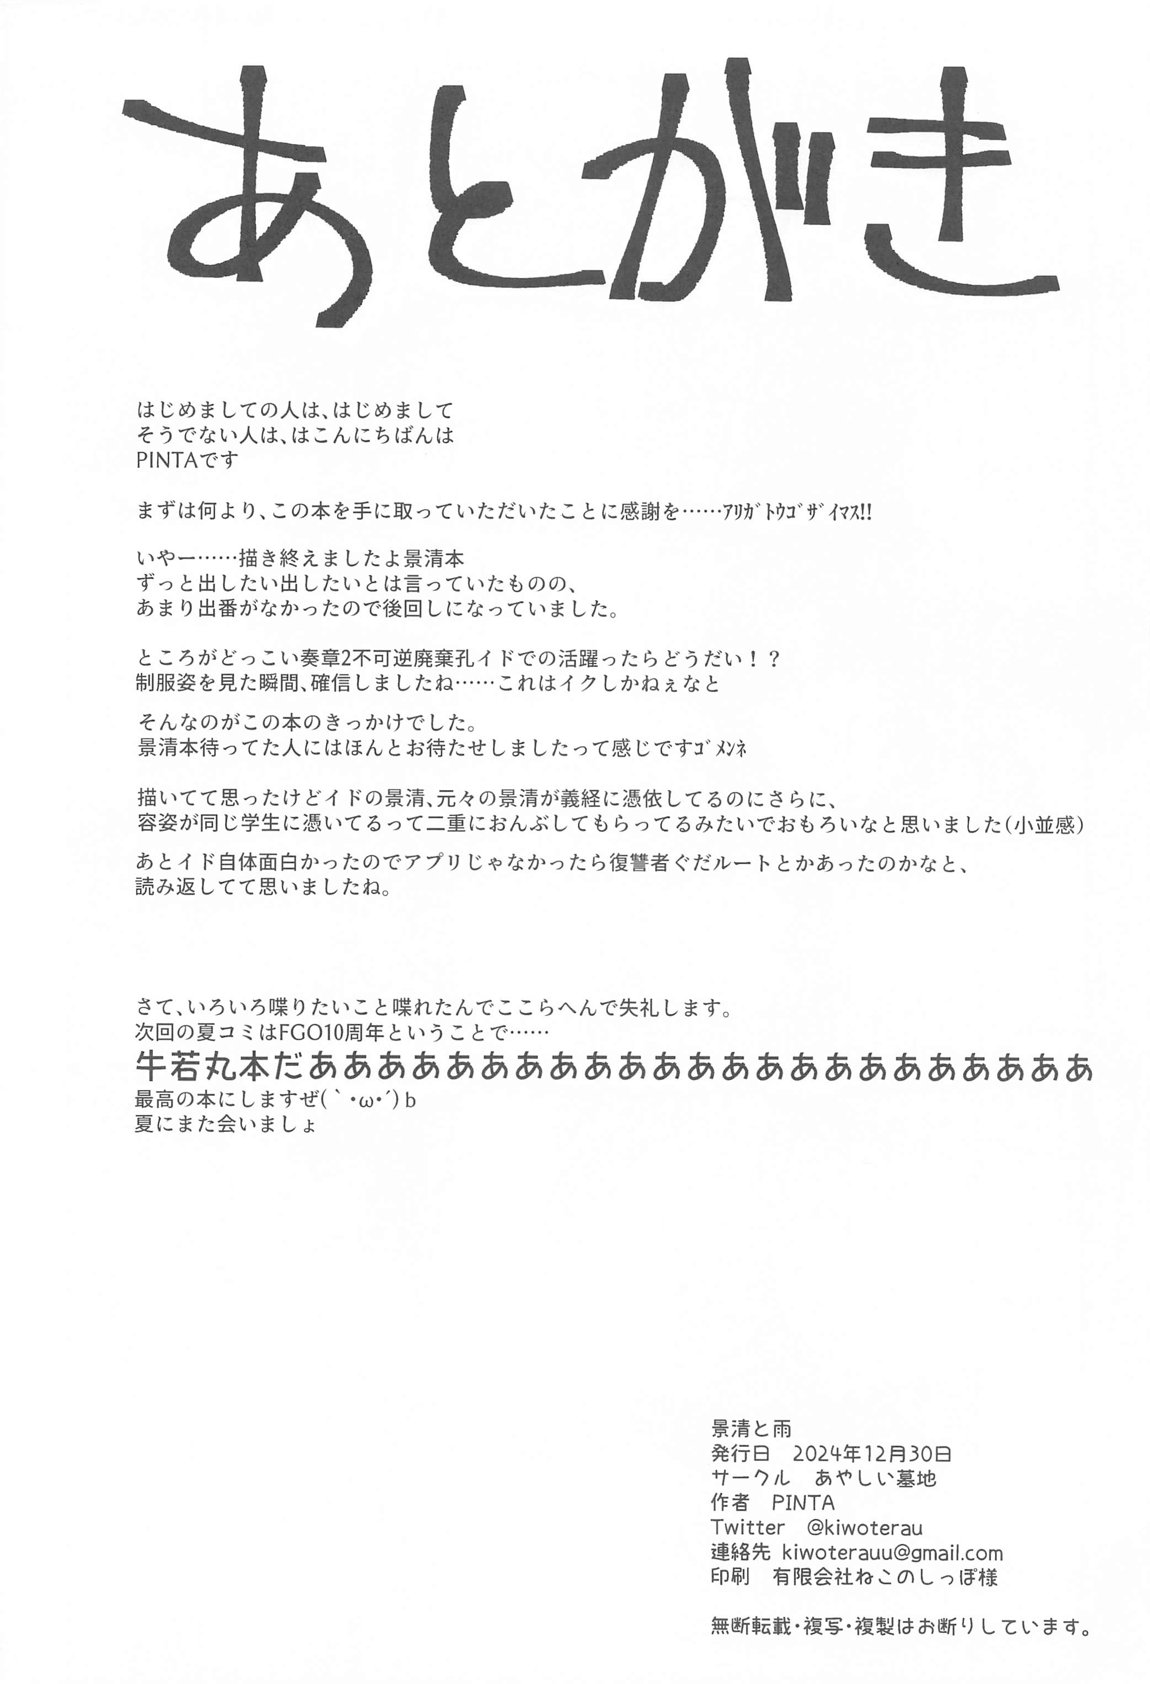 あとがき
はじめましての人は、はじめまして
そうでない人は、はこんにちばんは
PINTAです
まずは何より、この本を手に取っていただいたことに感謝を……ｱﾘｶﾞﾄｳｺﾞｻﾞｲﾏｽ!!
いやー……描き終えましたよ景清本
ずっと出したい出したいとは言っていたものの、
あまり出番がなかったので後回しになっていました。
ところがどっこい奏章2不可逆廃棄孔イドでの活躍ったらどうだい！？
制服姿を見た瞬間、確信しましたね……これはイクしかねぇなと
そんなのがこの本のきっかけでした。
景清本待ってた人にはほんとお待たせしましたって感じですｺﾞﾒﾝﾈ
描いてて思ったけどイドの景清、元々の景清が義経に憑依してるのにさらに、
容姿が同じ学生に憑いてるって二重におんぶしてもらってるみたいでおもろいなと思いました（小並感）
あとイド自体面白かったのでアプリじゃなかったら復讐者ぐだルートとかあったのかなと、
読み返してて思いましたね。
さて、いろいろ喋りたいこと喋れたんでここらへんで失礼します。
次回の夏コミはFGO10周年ということで……
牛若丸本だあああああああああああああああああああああああ
最高の本にしますぜ(｀・ω・´)ｂ
夏にまた会いましょ
景清と雨
発行日　2024年12月30日
サークル　あやしい墓地
作者　PINTA
Twitter　@kiwoterau
連絡先 kiwoterauu@gmail.com
印刷　有限会社ねこのしっぽ様
無断転載・複写・複製はお断りしています。